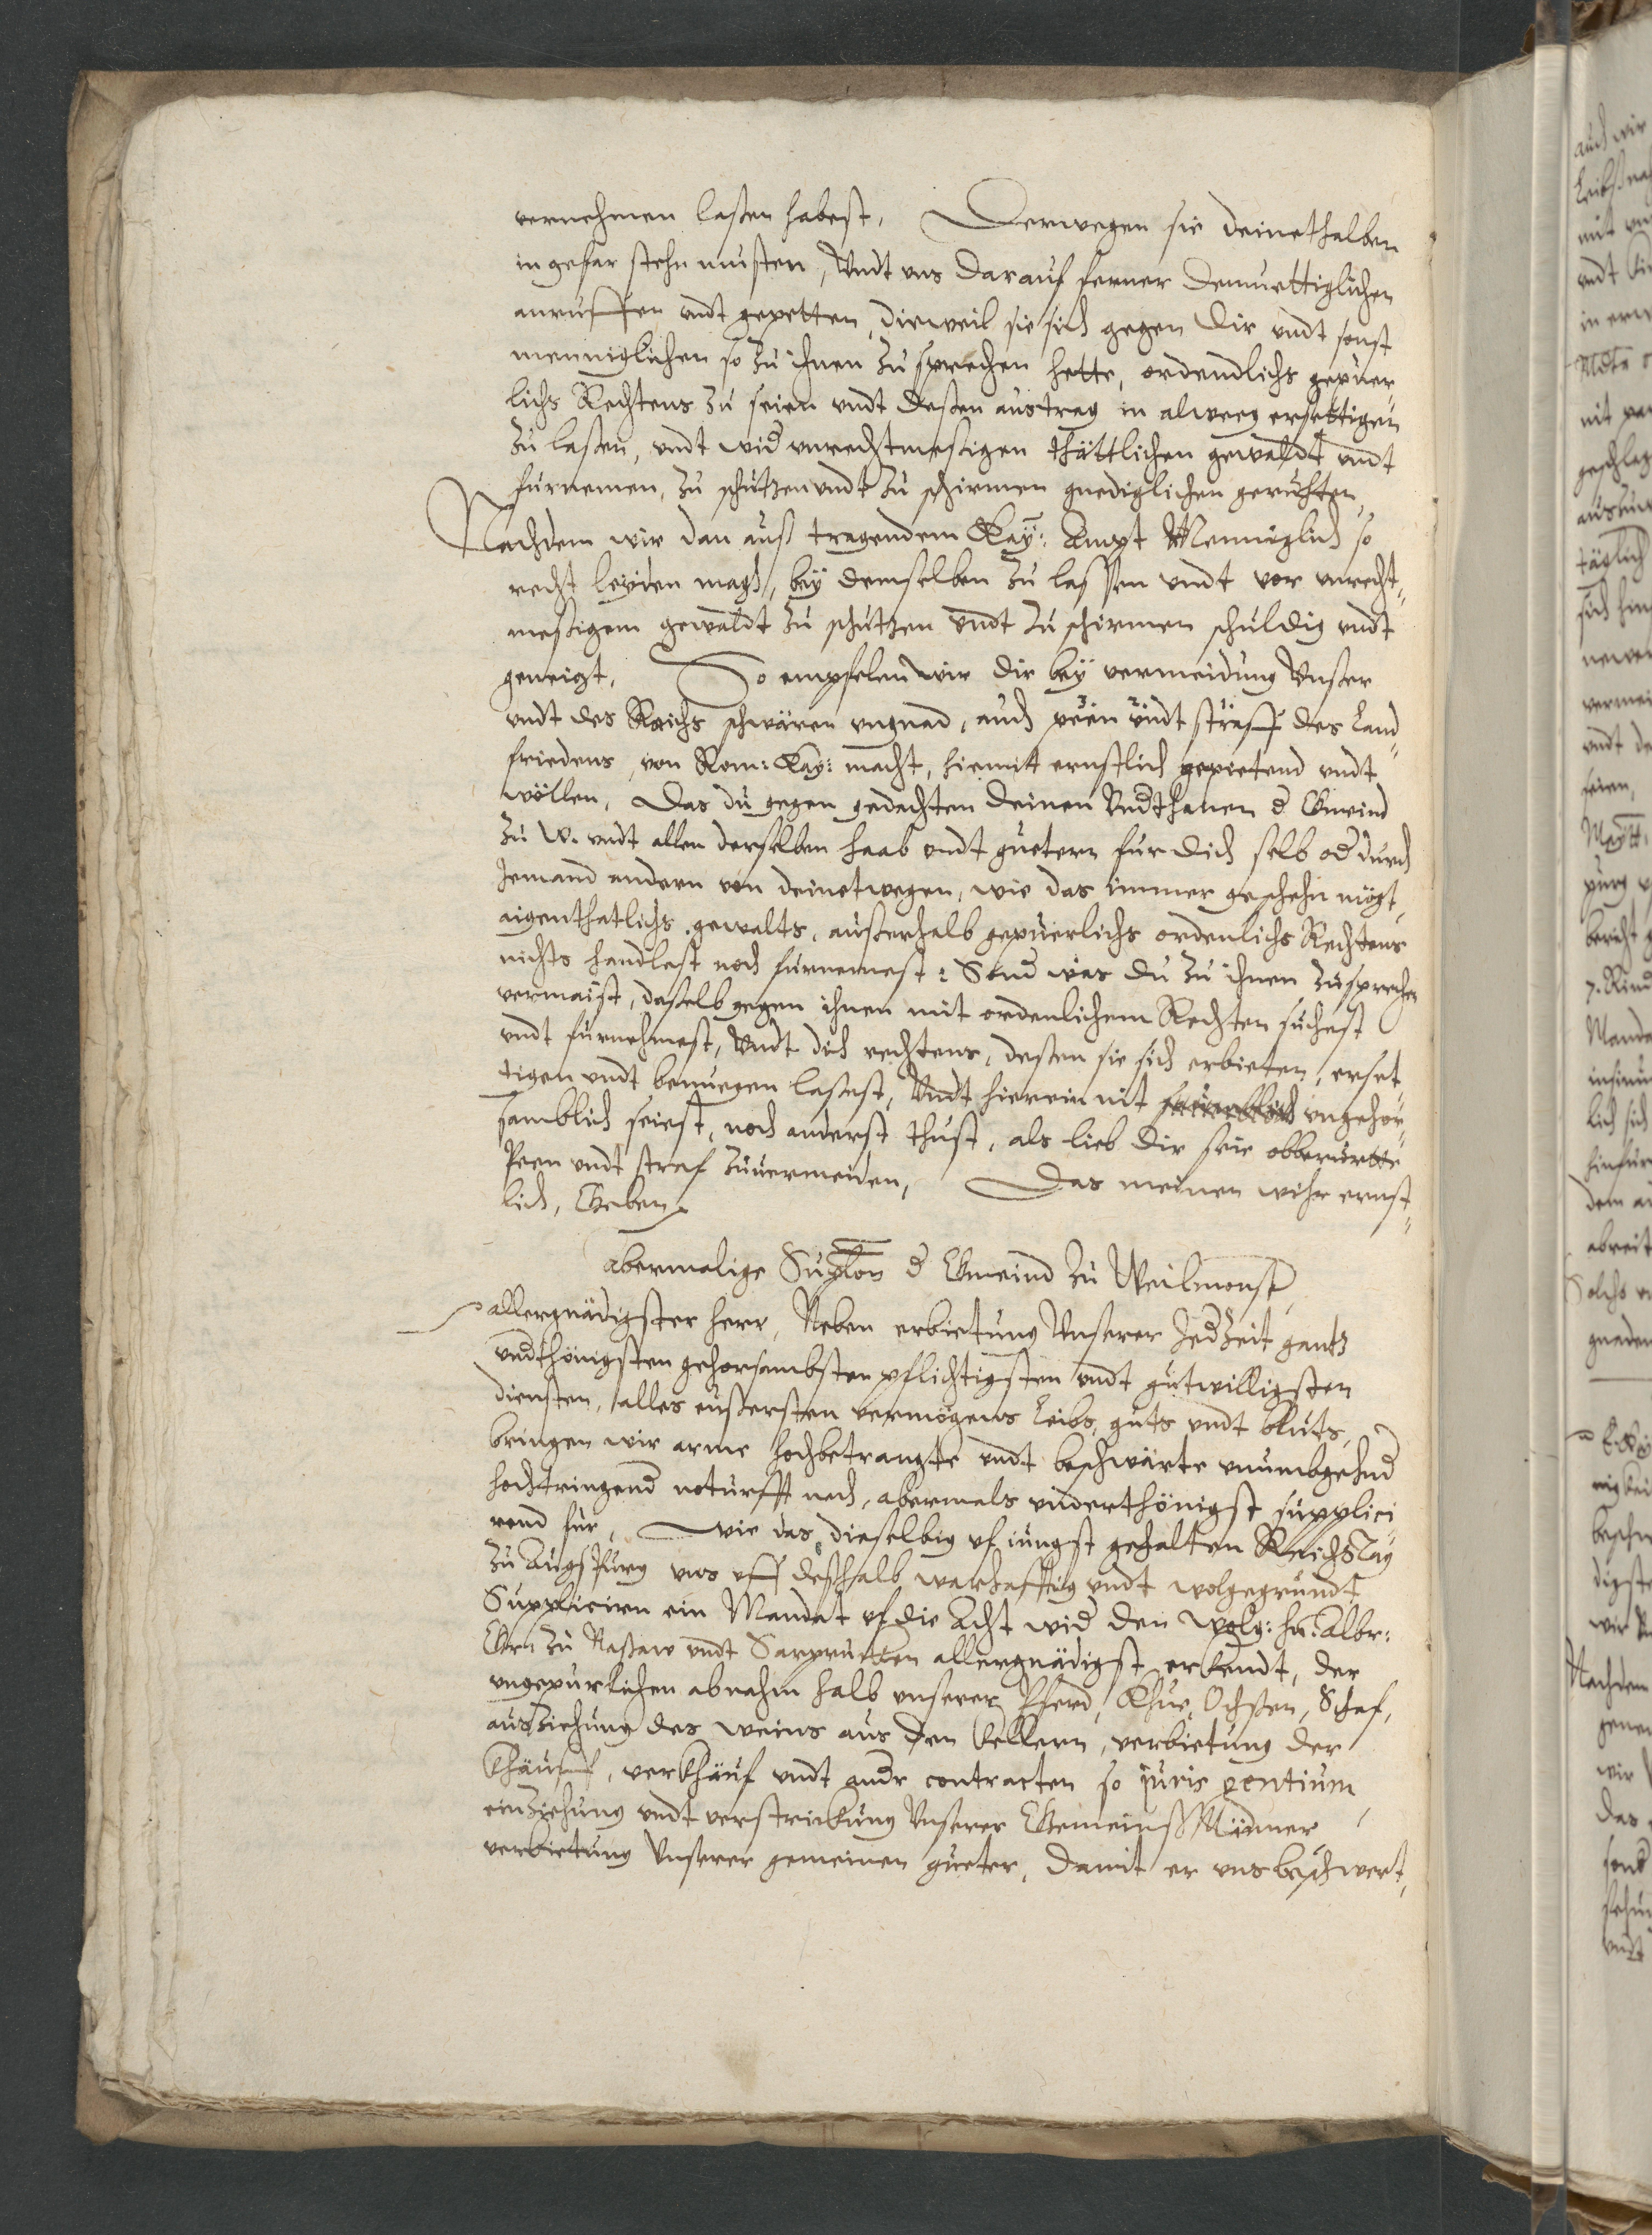 vernehmen laßen habest, Derwegen sie deinethalben
in gefar stehn musten, Vndt vns darauf ferner demuettiglichen
anruffen vndt gepetten, dieweil sie sich gegen dir vndt sonst
menniglichen so zu ihnen zu sprechen hette, ordendlichs gepuer¬
lichs Rechtens zu seien vndt deßen austrag in alweeg ersettigen
zu laßen, vndt wid vnrechtmeßigen thättlichen gewaldt vndt
furnemen, zu schutzen vndt zu schirmen gnediglichen geruhten,
Nachdem wir dan auß tragendem Kay: Ampt Menniglich so
recht leyden magh, bey demselben zu lassen vndt vor vnrecht¬
meßigem gewaldt zu schutzen vndt zu schirmen schuldig vndt
geneigt, So empfelen wir dir bey vermeidung Vnßer
vndt des Reichs schwären vngnad, auch peen vndt straff des Land¬
friedens, von Rom: Kay: macht, hiemit ernstlich gepietend vndt
wöllen, Das du gegen gedachten deinen Vndthanen d Gmeind
zu W. vndt allen derselben haab vndt guetern fur dich selb od durch
Jemand andern von deinetwegen, wie das immer geschehn mögt,
aigenthatlichs gewalts, außerhalb gepuerlichs ordenlichs Rechtens
nichts handlest noch furnemest: Sond was du zu ihnen zusprechen
vermaist, daßelb gegen ihnen mit ordenlichem Rechten suchest
vndt furnehmest, Vndt dich rechtens, deßen sie sich erbieten, erset
tigen vndt benuegen laßest, Vndt hierein nit vngehor¬
samblich seiest, noch anderst thust, als lieb dir seie obberurtte
Peen vndt straf zuuermeiden, Das meinen wihr ernst¬
lich, Geben
abermalige Supplon d Gmeind zu Weilmonst
allergnädigster herr, Neben erbietung Vnserer Jedzeit gantz
vndthönigsten gehorsambsten pflichtigsten vndt gutwilligsten
diensten, alles eußersten vermögens Leibs, guts vndt bluts,
bringen wir arme hochbetrangte vndt beschwärte vnumbgehnd
hochtringend noturfft nach, abermals vnderthönigst supplici
rend fur, wie das dieselbig vf iungst gehalten Reichs Tag
zu Augspurg vns vff deßhalb warhafftig vndt wolgegrundt
Suppliciren ein Mandat vf die Acht wid den wolg: hn. Albr:
Gren zu Naßaw vndt Sarprucken allergnädigst erkendt, der
vngepurlichen abnahm halb vnserer Pferd, Khue, Ochßen, Schaf,
ausziehung des weins aus den Kellern, verbietung der
Khäuf, verkhäuf vndt andr contracten so juris gentium,
einziehung vndt verstrickung Vnserer Gemeinß Männer,
verbietung Vnserer gemeinen gueter, damit er vns beschwert,